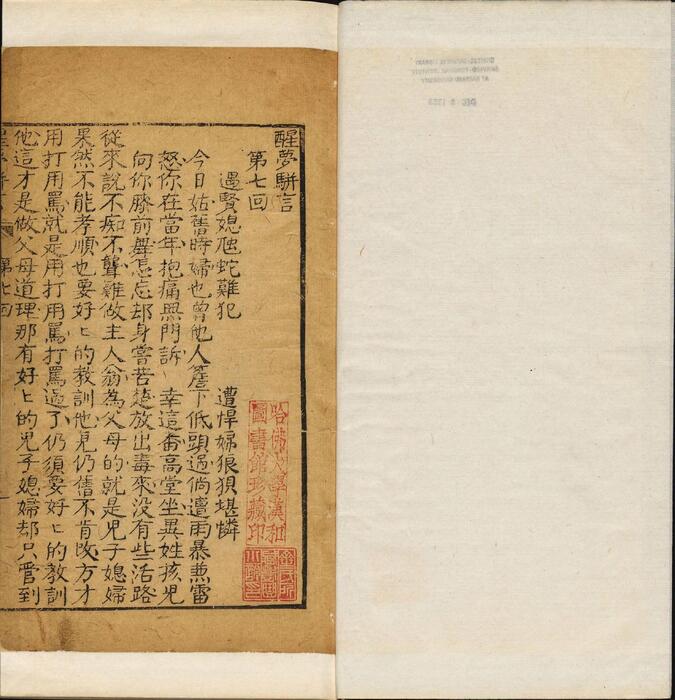 醒夢駢言
第七回
遇賢媳虺蛇難犯 遭悍婦狼狽堪憐
今日姑舊時婦也曾他人簷下低頭過倘遭雨暴兼雷
怒你在當年抱痛無門訴 幸這畨高堂坐異姓孩児
向你膝前舞怎忘却身嘗苦楚放出毒來没有些活路
從來說不痴不聾難做主人翁為父母的就是児子媳婦
果然不能孝順也要好〻的教訓他見仍舊不肯改方才
用打用罵就是用打用罵打罵過了仍須要好〻的教訓
他這才是做父母道理那有好〻的児子媳婦却只管到
第七回
哈佛大學漢和
圖書館珍藏印